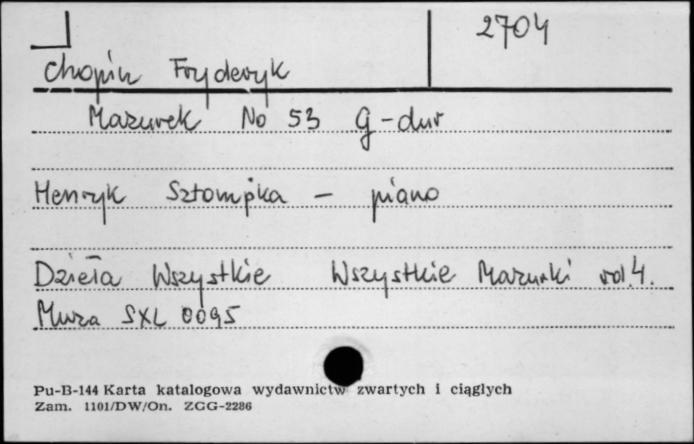 2704
Chopin Fryderyk
Mazurek No 53 G-dur
Henryk Sztompka - piano
Dzieła Wszystkie Wszystkie Mazurki vol.4.
Muza SXL 0095
Pu-B-144 Karta katalogowa wydawnictw zwartych i ciąglych
Zam. 1101/DW/On. ZCG-2286